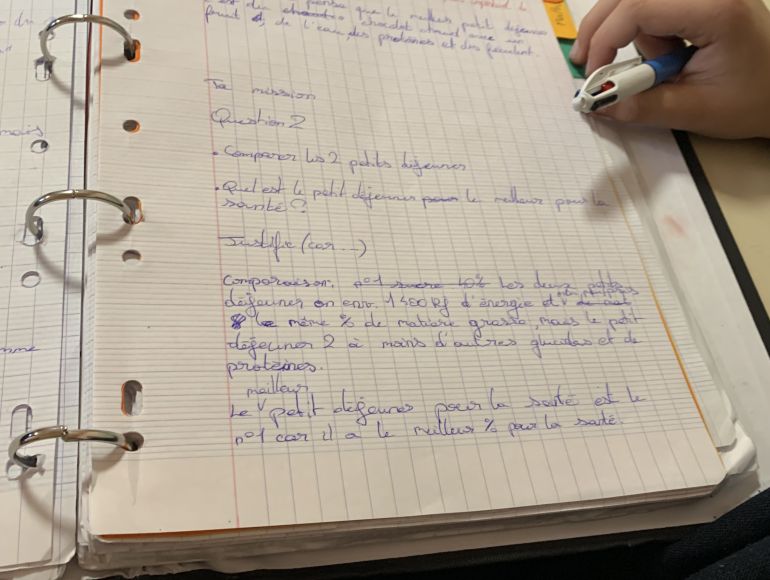 que le meilleur petit déjeuner
est du chocolat chaud avec un
fruit et, de l'eau, des protéines et des féculent.
Ta mission
Question 2
• Comparer les 2 petits déjeuner
• Quel est le petit déjeuner pour le meilleur pour la
santé ?
Justifie (car ...)
Comparaison. n°1 sucre 40% Les deux petits
déjeuner on env. 1400 kj d'énergie et
le même % de matière grasse, mais le petit
déjeuner 2 à moins d'autres glucides et de
protéines.
meilleur
Le petit déjeuner pour la santé est le
n°1 car il a le meilleur % pour la santé.
mais